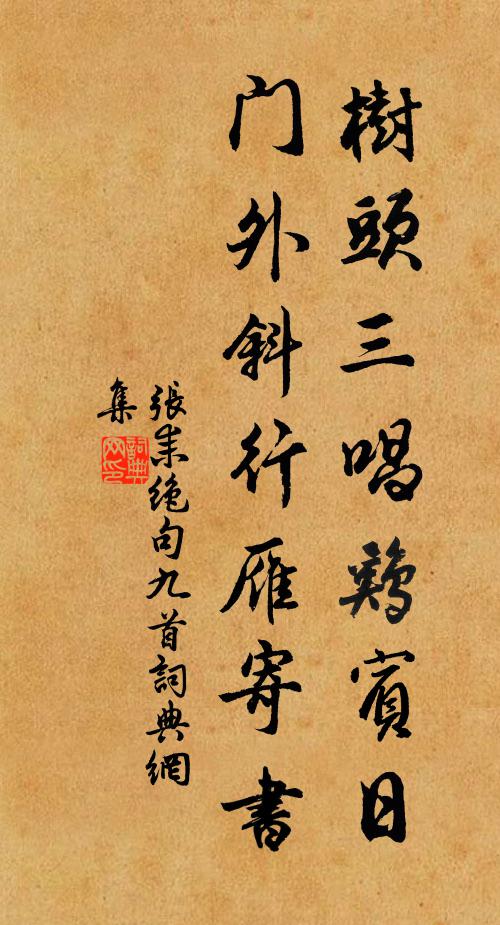 樹頭三唱鷄賓日
门外斜行雁寄書
張耒絶句九首詞典網
集
詞典
网印